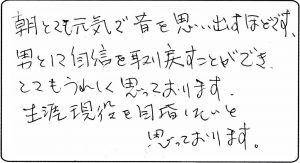 朝とても元気で昔を思い出すほどです、
男として自信を取り戻すことができ、
とてもうれしく思っております。
生涯現役を目指したいと
思っております。